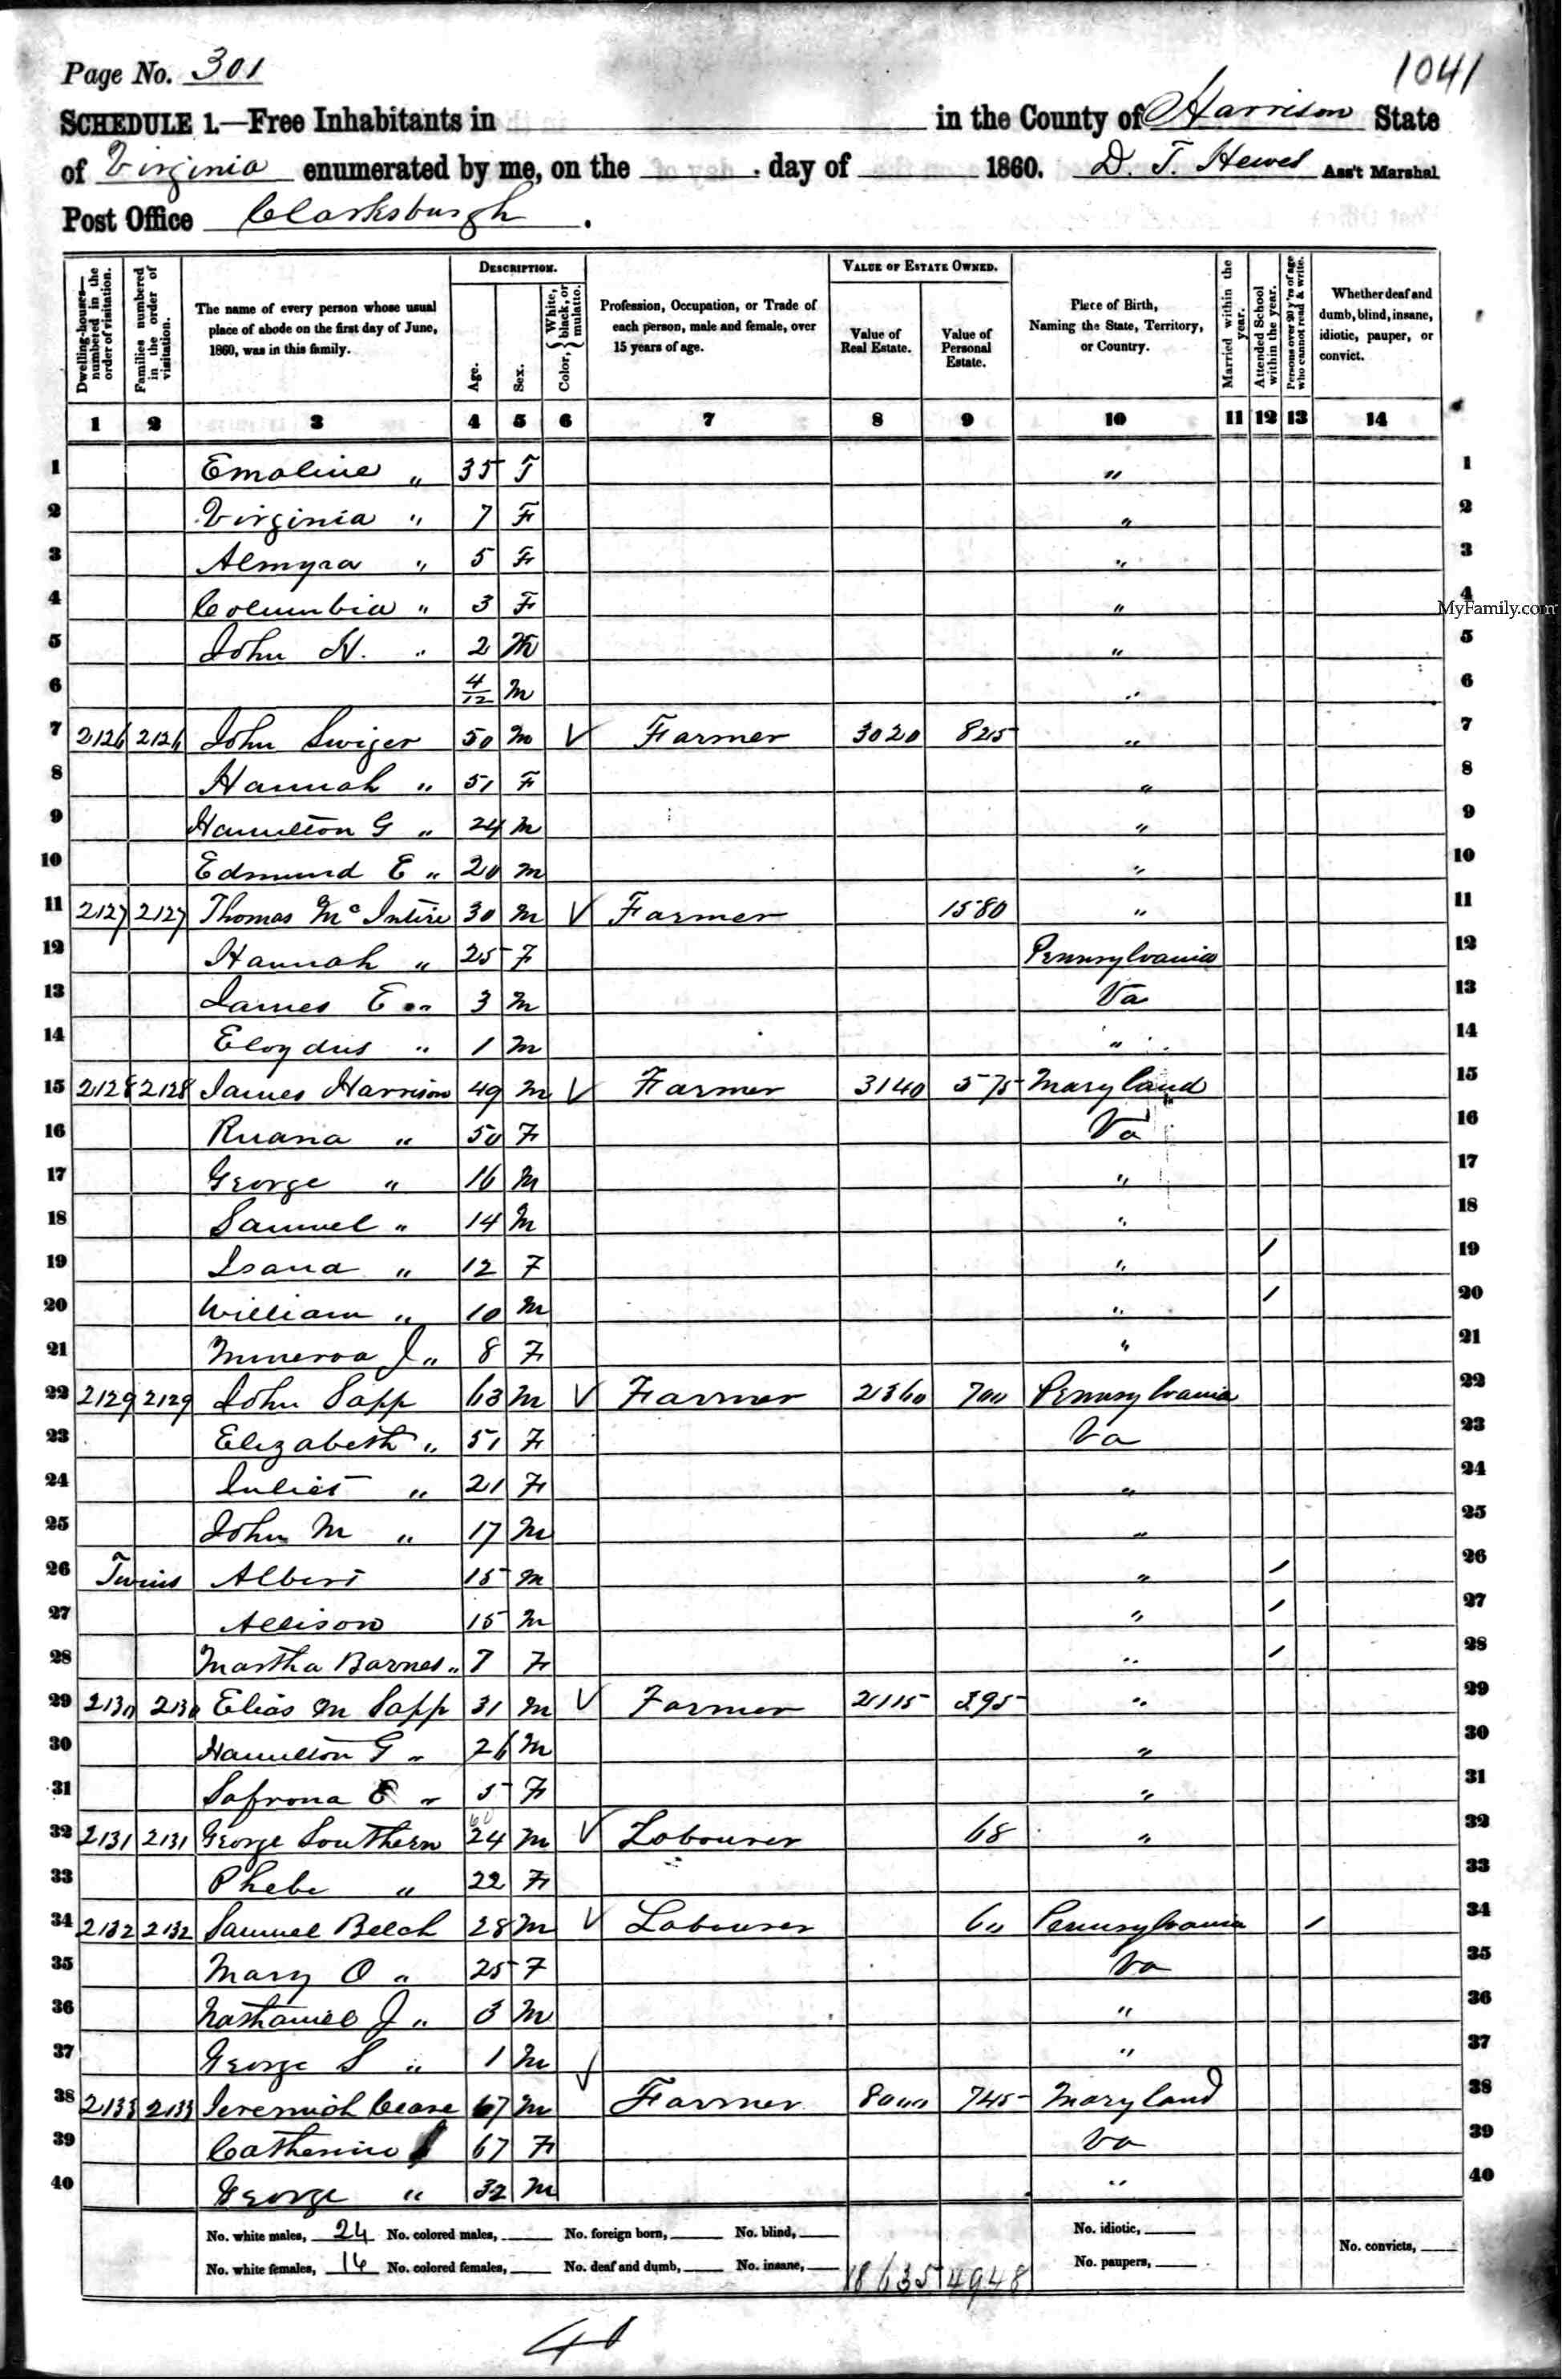 Page No. 301
1041
SCHEDULE 1.—Free Inhabitants in in the County of Harrison State
of Virginia enumerated by me, on the day of 1860. D. T. Hewes Ass't Marshal
Post Office Clarksburgh.
Dwelling-houses—numbered in the order of visitation.
Families numbered in the order of visitation.
The name of every person whose usual place of abode on the first day of June, 1860, was in this family.
DESCRIPTION.
Age.
Sex.
Color, { White, black, or mulatto.
Profession, Occupation, or Trade of each person, male and female, over 15 years of age.
VALUE OF ESTATE OWNED.
Value of Real Estate.
Value of Personal Estate.
Place of Birth, Naming the State, Territory, or Country.
Married within the year.
Attended School within the year.
Persons over 20 y'rs of age who cannot read & write.
Whether deaf and dumb, blind, insane, idiotic, pauper, or convict.
1 2 3 4 5 6 7 8 9 10 11 12 13 14
1 Emaline " 35 F " 1
2 Virginia " 7 F " 2
3 Almyra " 5 F " 3
4 Columbia " 3 F " 4
MyFamily.com
5 John N. " 2 M " 5
6 4/12 M " 6
7 2126 2126 John Swiger 50 M V Farmer 3020 825 " 7
8 Hannah " 51 F " 8
9 Hamilton G " 24 M " 9
10 Edmund E " 20 M " 10
11 2127 2127 Thomas McIntire 30 M V Farmer 1580 " 11
12 Hannah " 25 F Pennsylvania 12
13 James E " 3 M Va 13
14 Eloydus " 1 M " 14
15 2128 2128 James Harrison 49 M V Farmer 3140 575 Maryland 15
16 Ruana " 50 F Va 16
17 George " 16 M " 17
18 Samuel " 14 M " 18
19 Isana " 12 F " / 19
20 William " 10 M " / 20
21 Minerva J " 8 F " 21
22 2129 2129 John Sapp 63 M V Farmer 2360 700 Pennsylvania 22
23 Elizabeth " 51 F Va 23
24 Juliet " 21 F " 24
25 John M " 17 M " 25
26 Twins Albert 15 M " / 26
27 Allison 15 M " / 27
28 Martha Barnes " 7 F " / 28
29 2130 2130 Elias M Sapp 31 M V Farmer 2115 395 " 29
30 Hamilton G " 26 M " 30
31 Safrona E " 5 F " 31
32 2131 2131 George Southern 24 M V Labourer 68 " 32
33 Phebe " 22 F 33
34 2132 2132 Samuel Belch 28 M V Labourer 60 Pennsylvania / 34
35 Mary O " 25 F Va 35
36 Nathaniel J " 3 M " 36
37 George S " 1 M " 37
38 2133 2133 Jeremiah Cease 67 M V Farmer 8000 745 Maryland 38
39 Catherine 67 F Va 39
40 George " 32 M " 40
No. white males, 24 No. colored males, No. foreign born, No. blind, No. idiotic,
No. white females, 16 No. colored females, No. deaf and dumb, No. insane, 18635 4948 No. paupers, No. convicts,